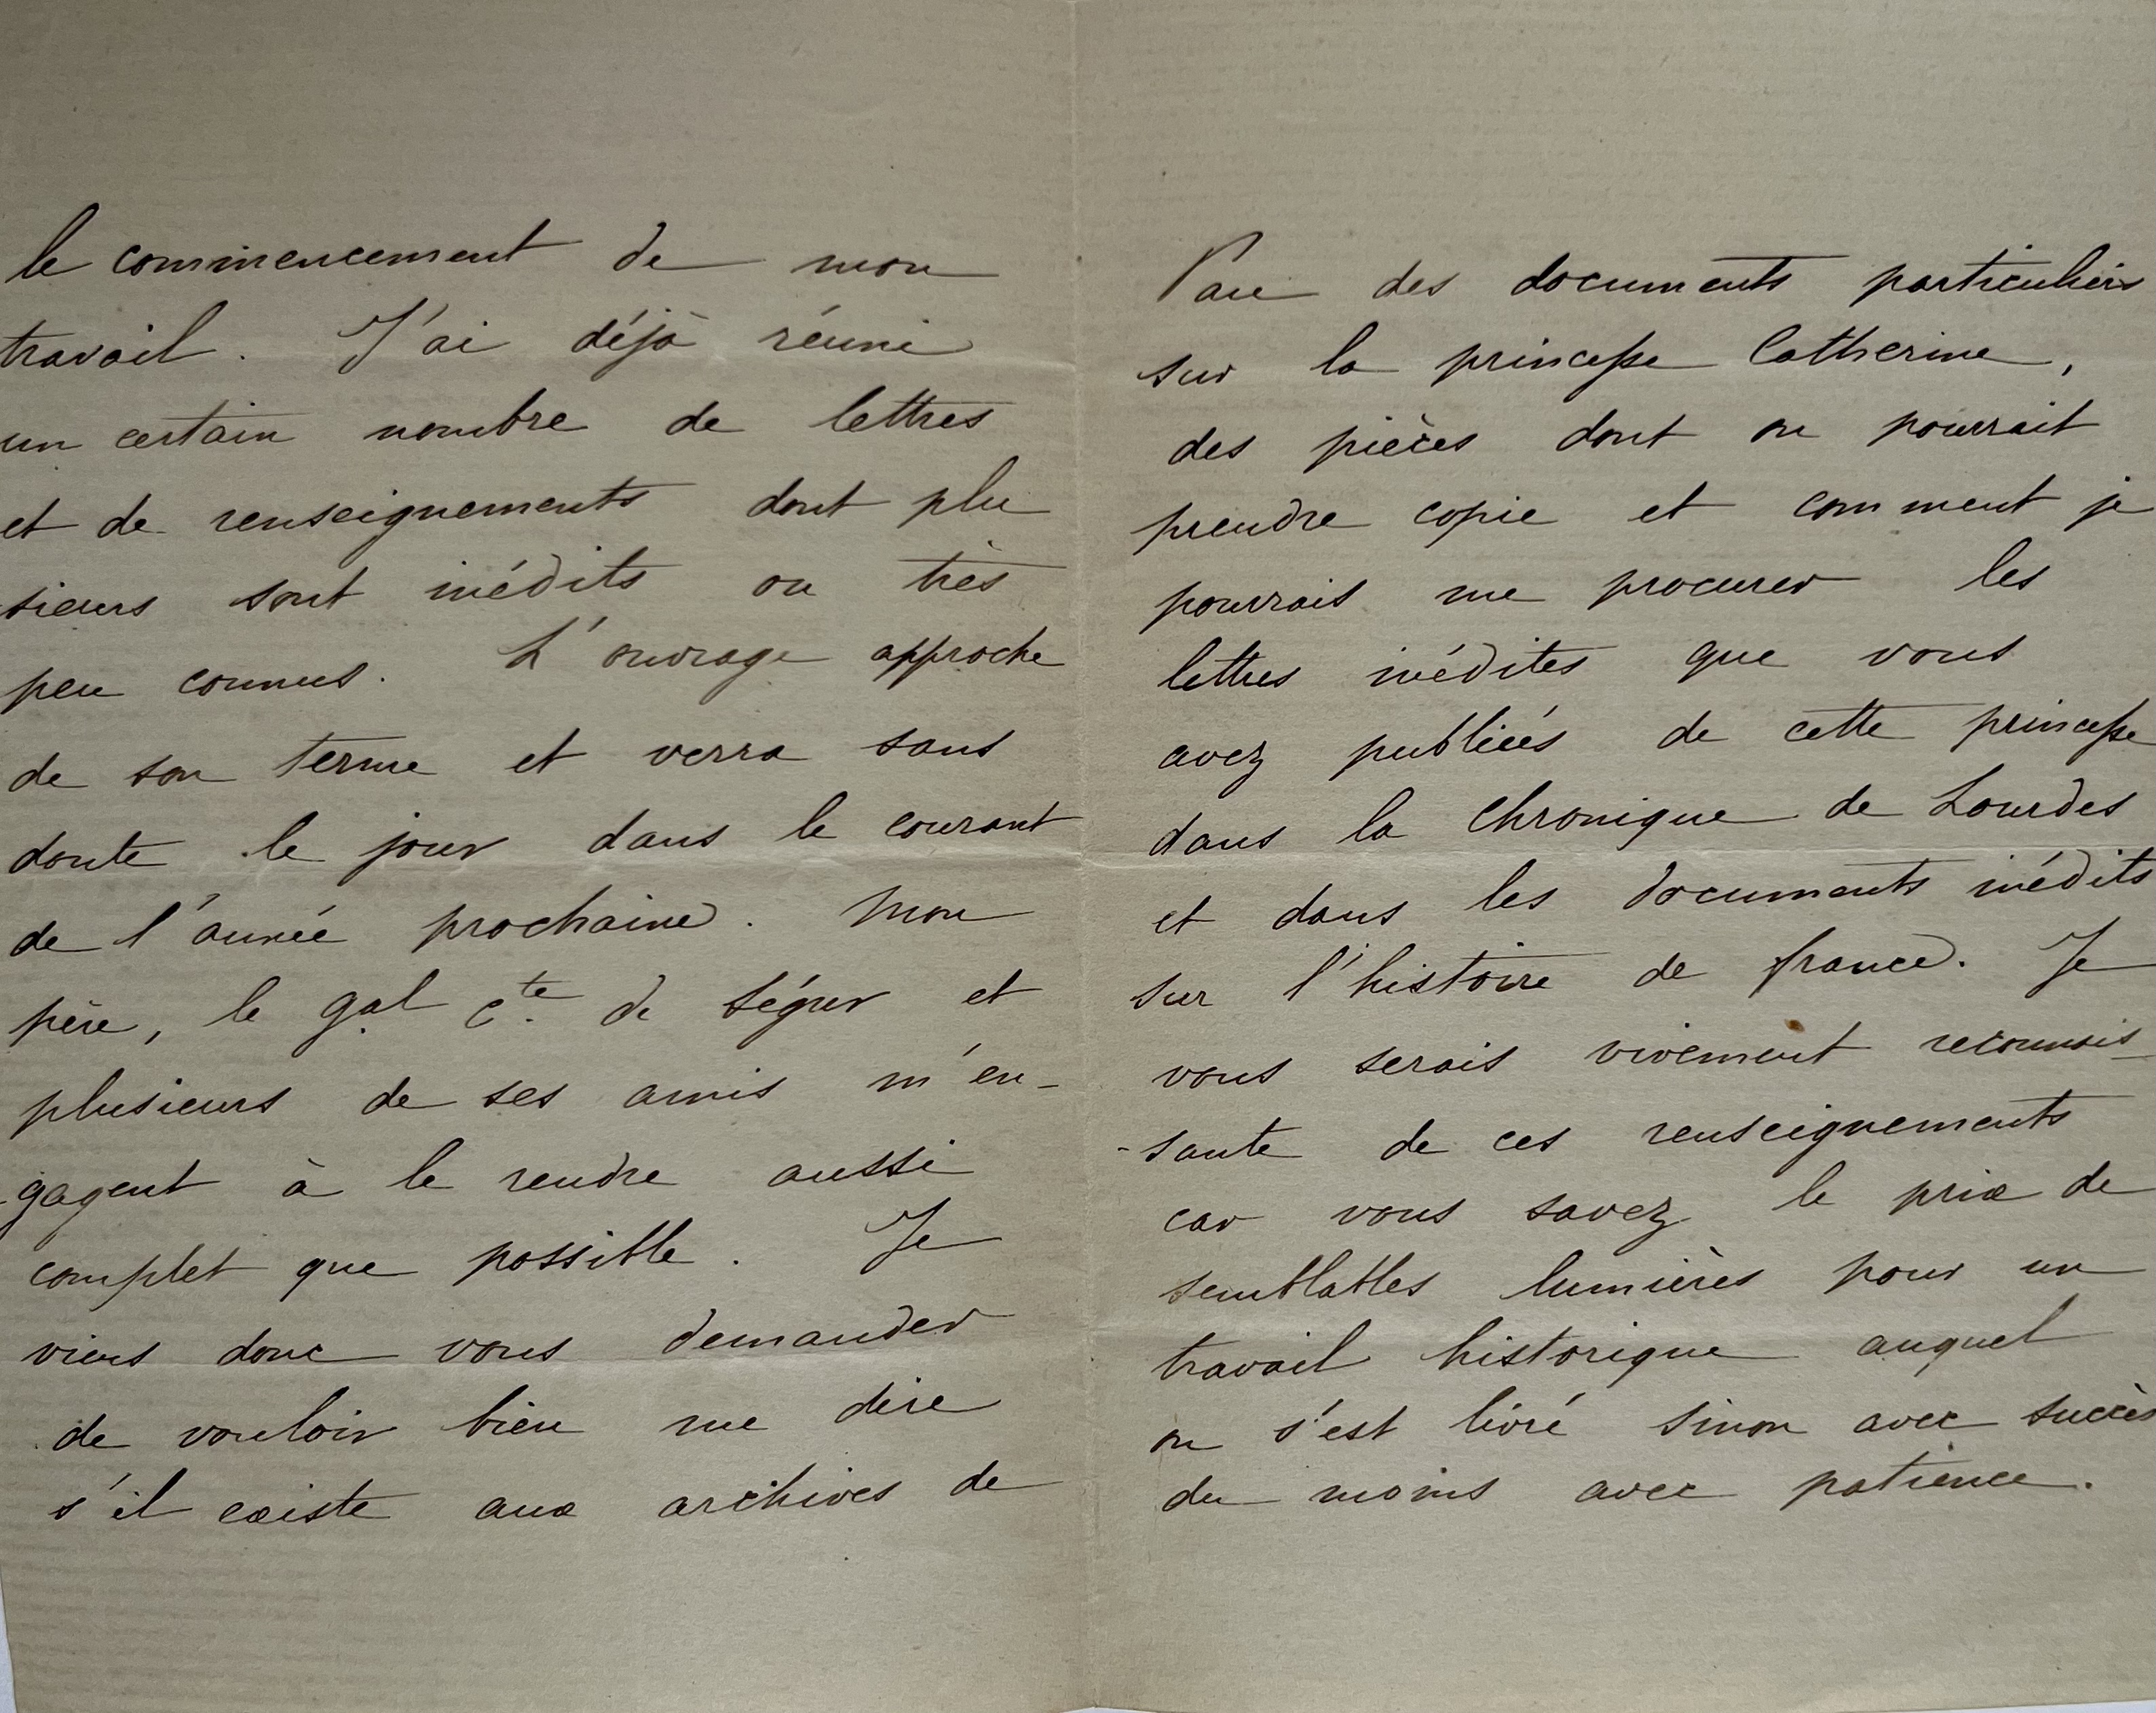 le commencement de mon
travail. J'ai déjà réuni
un certain nombre de lettres
et de renseignements dont plu
sieurs sont inédits ou très
peu connus. L'ouvrage approche
de son terme et verra sans
doute le jour dans le courant
de l'année prochaine. Mon
père, le gal cte de Ségur et
plusieurs de ses amis m'en-
-gagent à le rendre aussi
complet que possible. Je
viens donc vous demander
de vouloir bien me dire
s'il existe aux archives de
Pau des documents particuliers
sur la princesse Catherine,
des pièces dont on pourrait
prendre copie et comment je
pourrais me procurer les
lettres inédites que vous
avez publiées de cette princesse
dans la Chronique de Lourdes
et dans les documents inédits
sur l'histoire de france. Je
vous serais vivement reconnais-
-sante de ces renseignements
car vous savez le prix de
semblables lumières pour un
travail historique auquel
on s'est livré sinon avec succès
du moins avec patience.